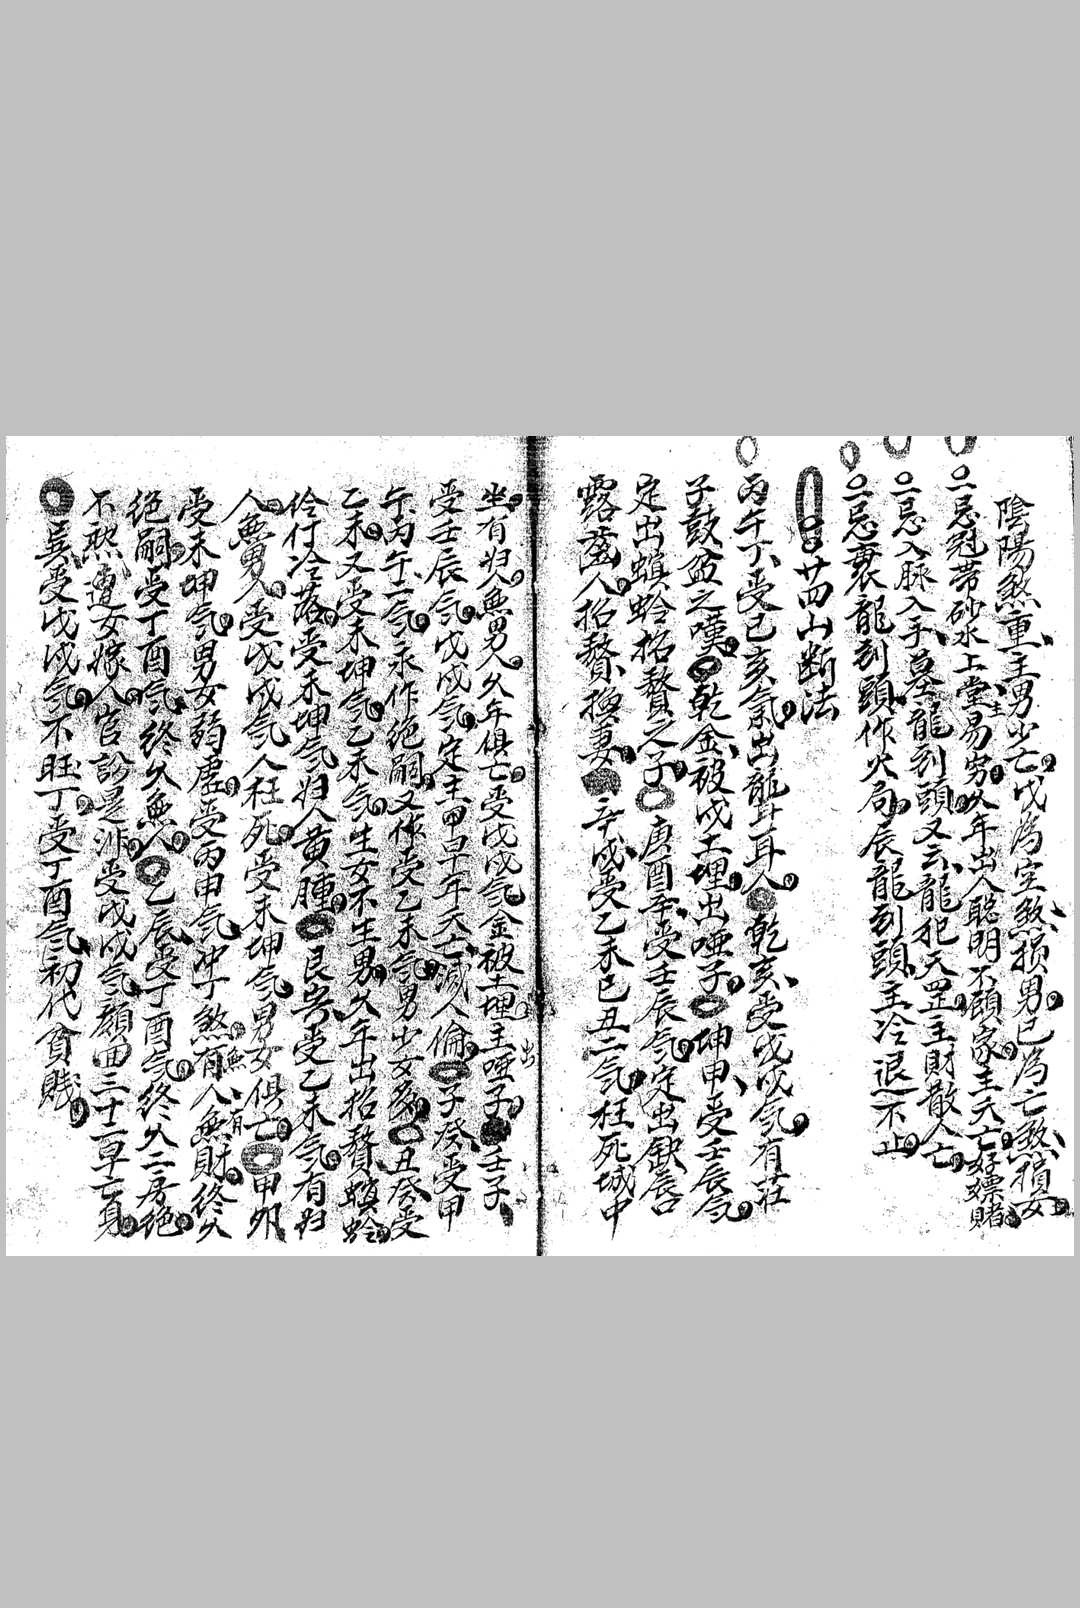 陰陽煞重主男少亡戊為空煞損男已為亡煞損女
一忌冠帶砂水上堂主易穷久年出人聪明不顧家主夭亡好嫖賭
一忌入脉入手墓龍到頭又云龍犯天罡主財散人亡
一忌衰龍到頭作火局辰龍到頭主冷退不止
廿四山断法
丙午丁受已亥氣出龍耳人乾亥受戊戌气有莊
子鼓盆之嘆乾金被戊土埋出啞子坤申受壬辰气
定出螟蛉招贅之子庚酉辛受壬辰气定出缺唇
露齒人招贅換妻辛戌受乙未已丑二气枉死城中
坐有妇人無男人久年俱亡受戊戌气金被土埋主出啞子壬子
受壬辰气戊戌气定主甲早年夭亡滅人倫子癸受甲
午丙午二气永作绝嗣又作受乙未气男少女多丑癸受
乙未又受未坤气乙未气生女不生男久年出招贅螟蛉
伶仃冷落受未坤气妇人黄腫艮寅受乙未气有妇
人無男人受戊戌气人枉死受未坤气男女俱亡甲卯
受未坤气男女弱虚受丙申气冲丁煞有人無財终久
無有
绝嗣受丁酉气终久無人乙辰受丁酉气终久二房绝
不煞遭女嫁人官訟是非受戊戌气顏回三十二早亡身
巽受戊戌气不旺丁受丁酉气初代貧賤